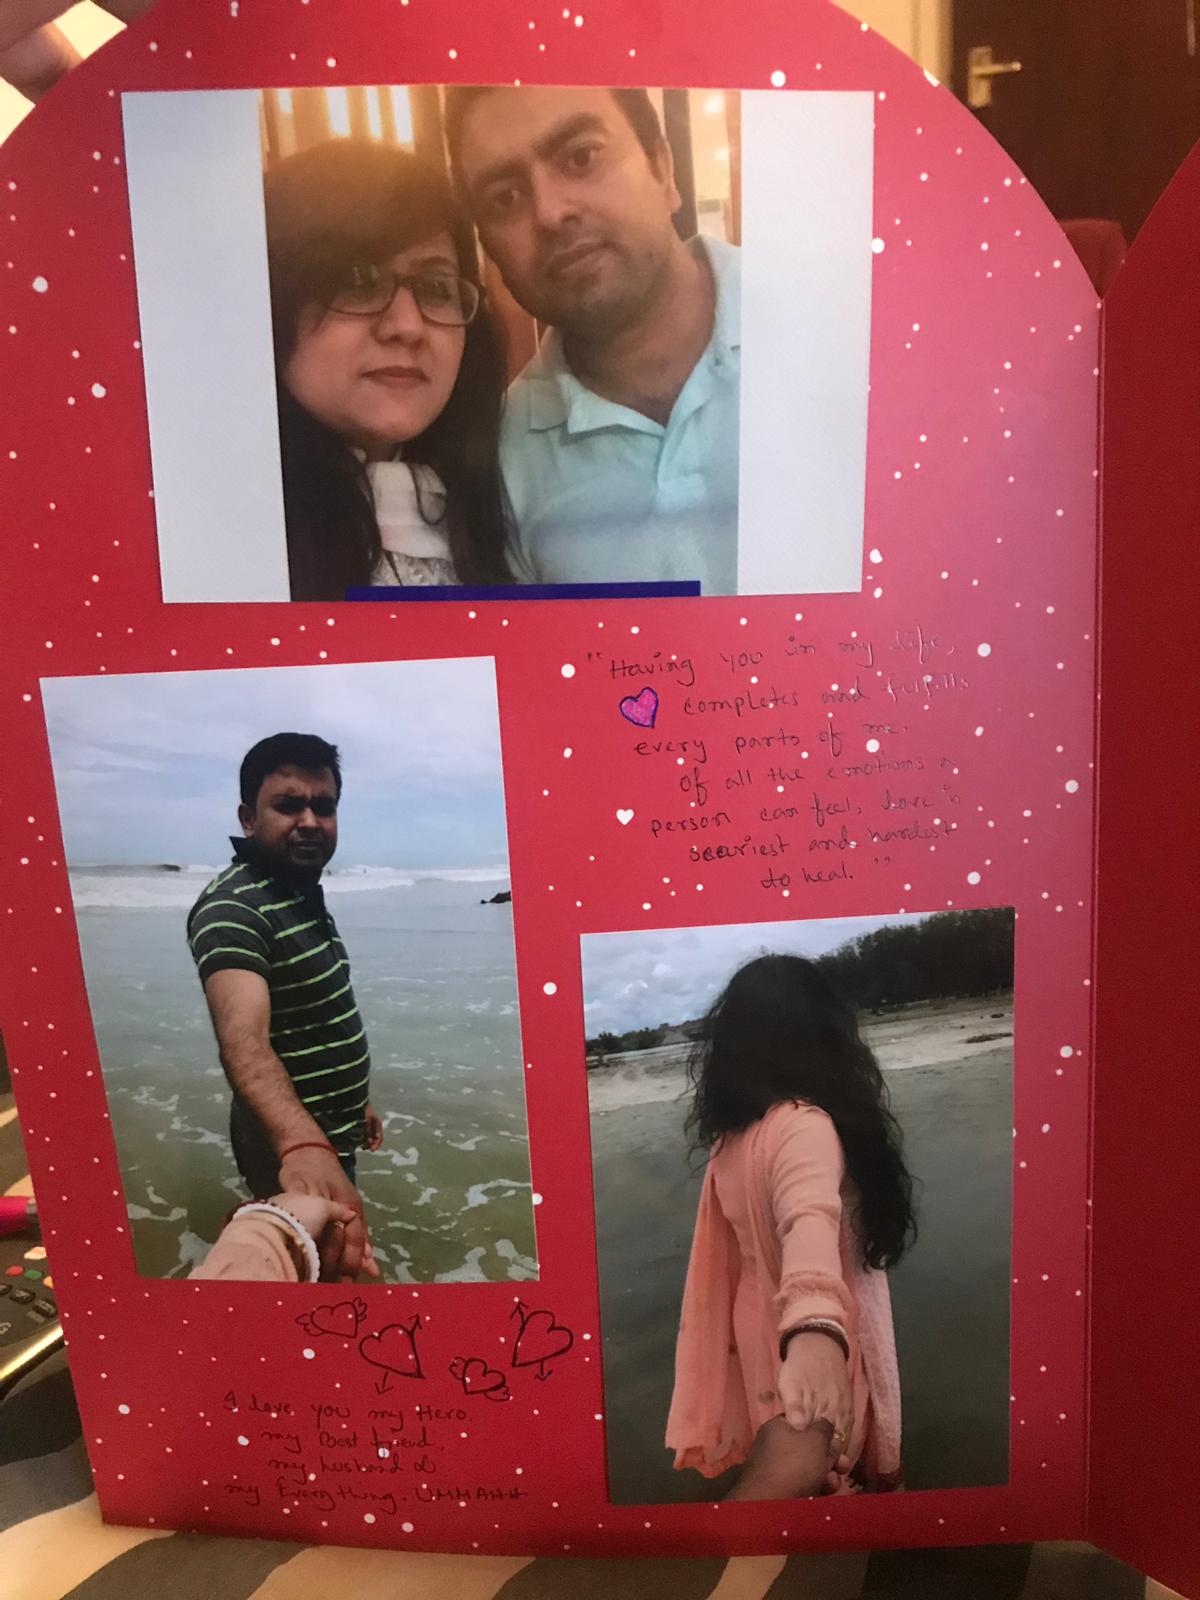 "Having you in my life,
completes and fulfills
every parts of me.
of all the emotions a
person can feel, love is
scariest and hardest
to heal."
I love you my Hero,
my Best friend,
my husband &
my Everything. UMMAHH